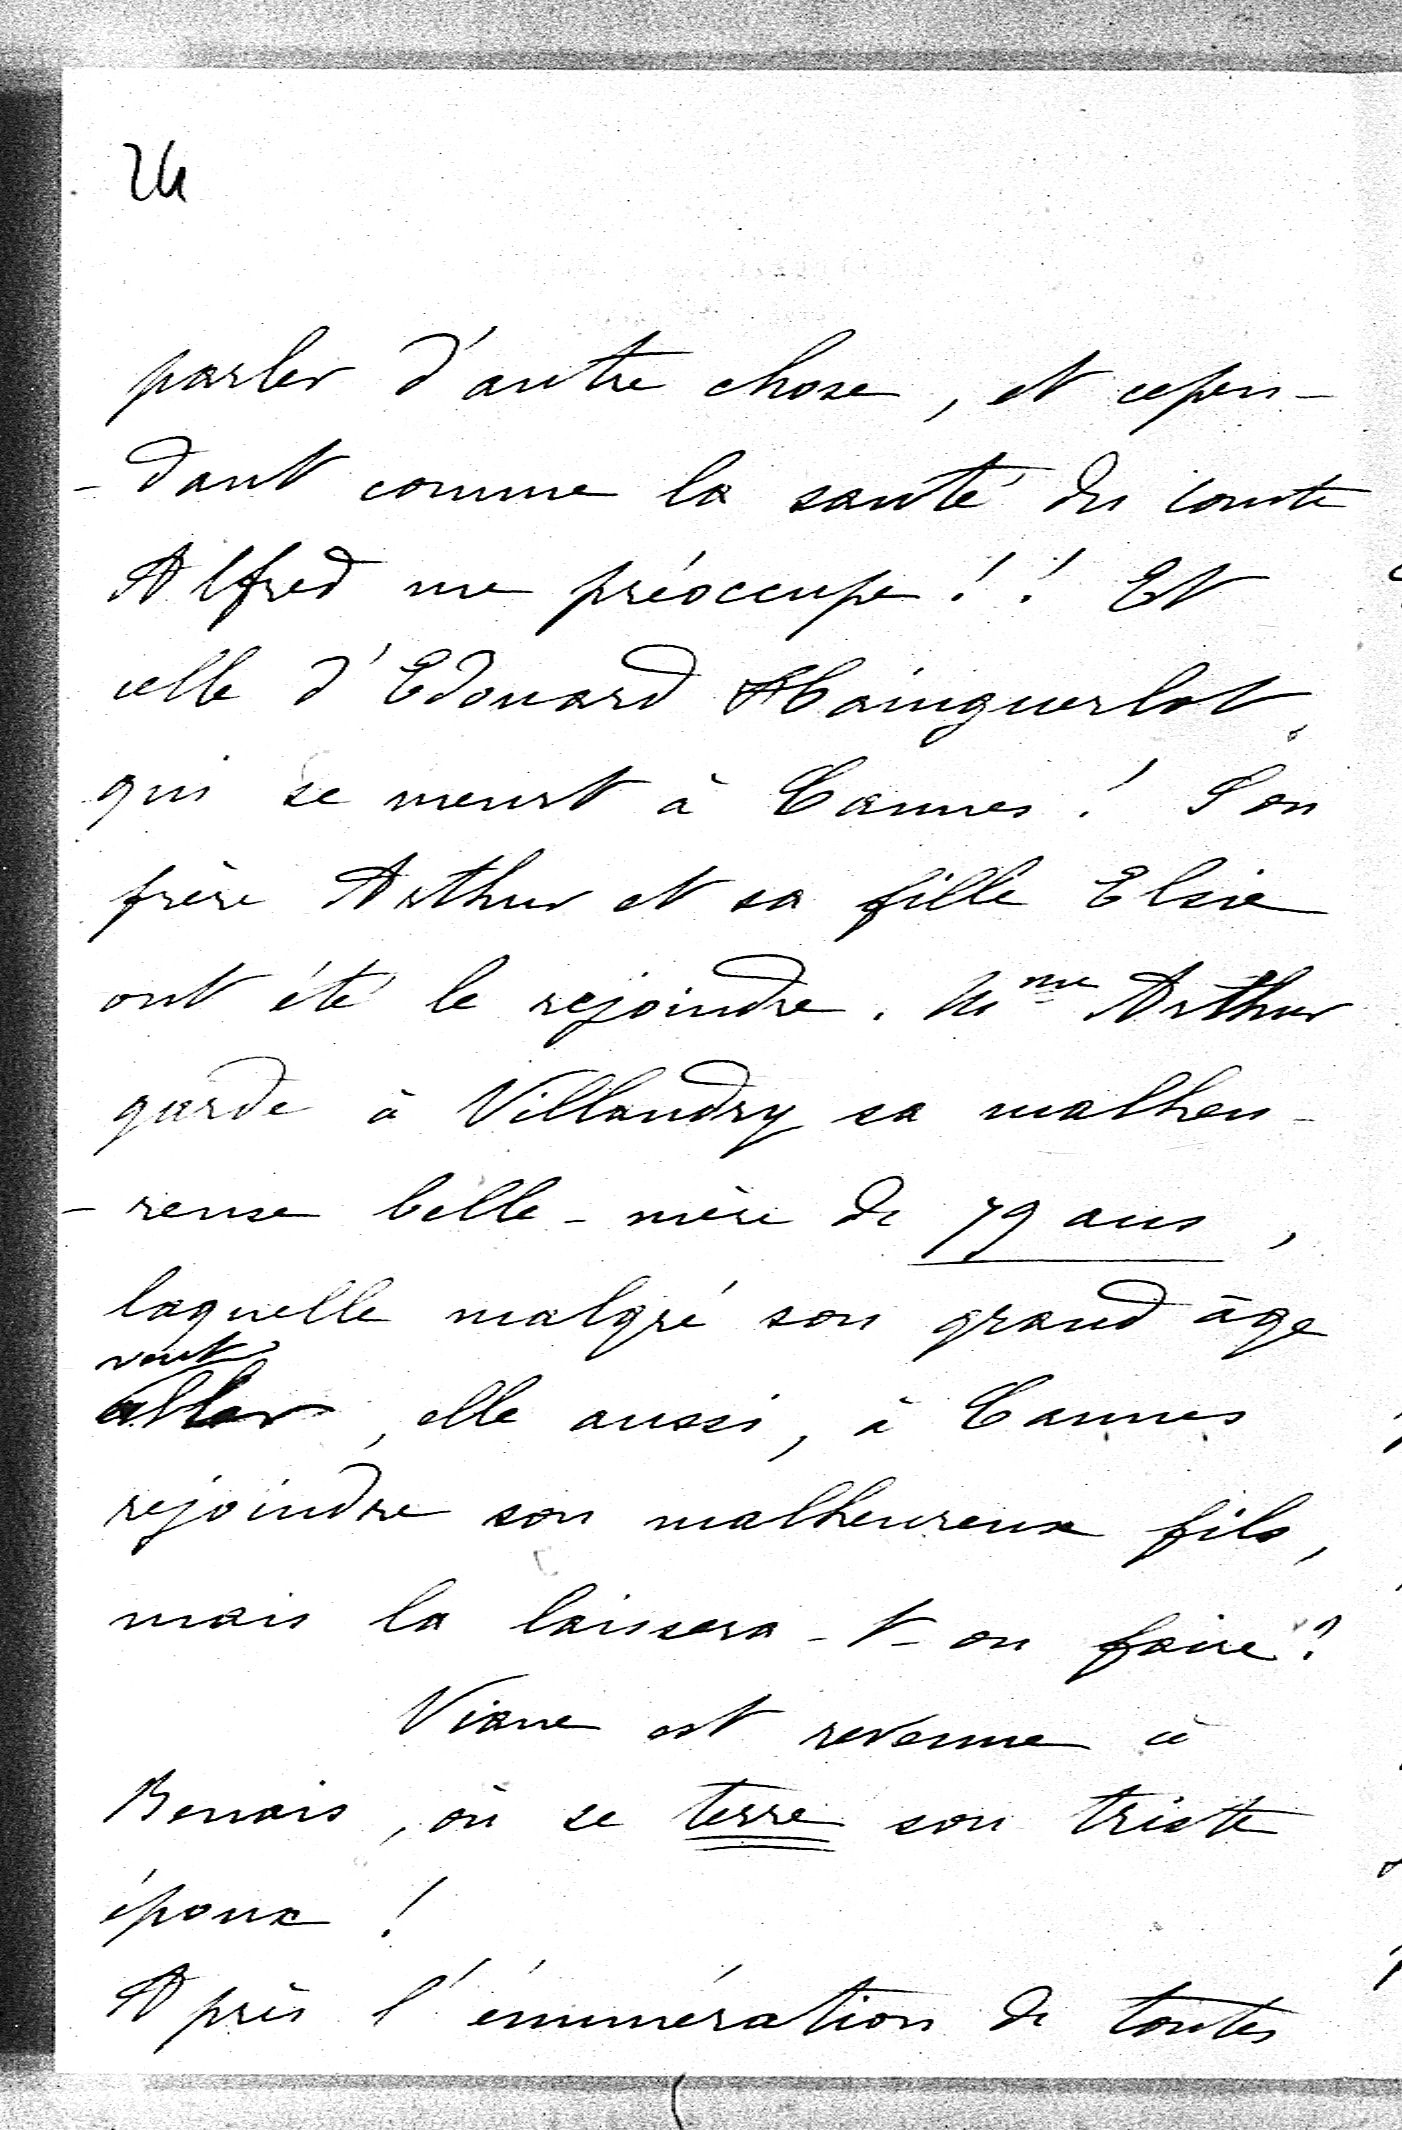 24
parler d'autre chose, et cepen-
-dant comme la santé du comte
Alfred me préoccupe!! Et
celle d'Edouard Hainguerlot,
qui se meurt à Cannes! Son
frère Arthur et sa fille Elsie
ont été le rejoindre. Mme Arthur
garde à Villandry sa malheu-
-reuse belle-mère de 79 ans,
laquelle malgré son grand âge
veut
aller, elle aussi, à Cannes
rejoindre son malheureux fils,
mais la laissera-t-on faire?
Viane est revenue à
Benais, où se terre son triste
époux!
Après l'énumération de toutes